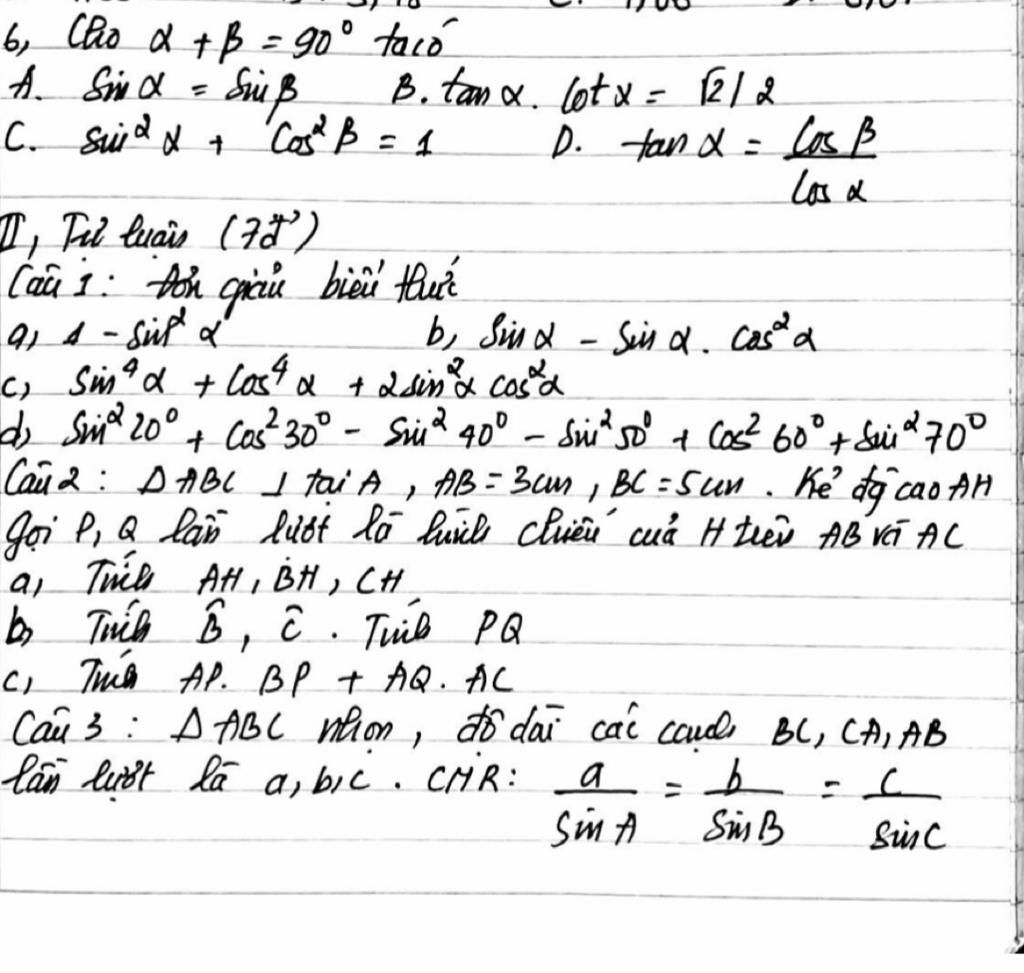 6, Cho α + β = 90° ta có
A. Sin α = Sin β B. tan α. Cot α = √2/2
C. sin² α + Cos² β = 1 D. tan α = Cos β / Cos α
II, Tự luận (7đ)
Câu 1: Đơn giản biểu thức
a, 1 - sin² α b, Sin α - Sin α. Cos² α
c, Sin⁴ α + Cos⁴ α + 2 sin² α cos² α
d, Sin² 20° + Cos² 30° - Sin² 40° - Sin² 50° + Cos² 60° + Sin² 70°
Câu 2: Δ ABC ⊥ tại A, AB = 3cm, BC = 5cm. Kẻ đg cao AH
gọi P, Q lần lượt là hình chiếu của H trên AB và AC
a, Tính AH, BH, CH
b, Tính B̂, Ĉ. Tính PQ
c, Tính AP. BP + AQ. AC
Câu 3: Δ ABC nhọn, độ dài các cạnh BC, CA, AB
lần lượt là a, b, c. CMR: a / Sin A = b / Sin B = c / Sin C